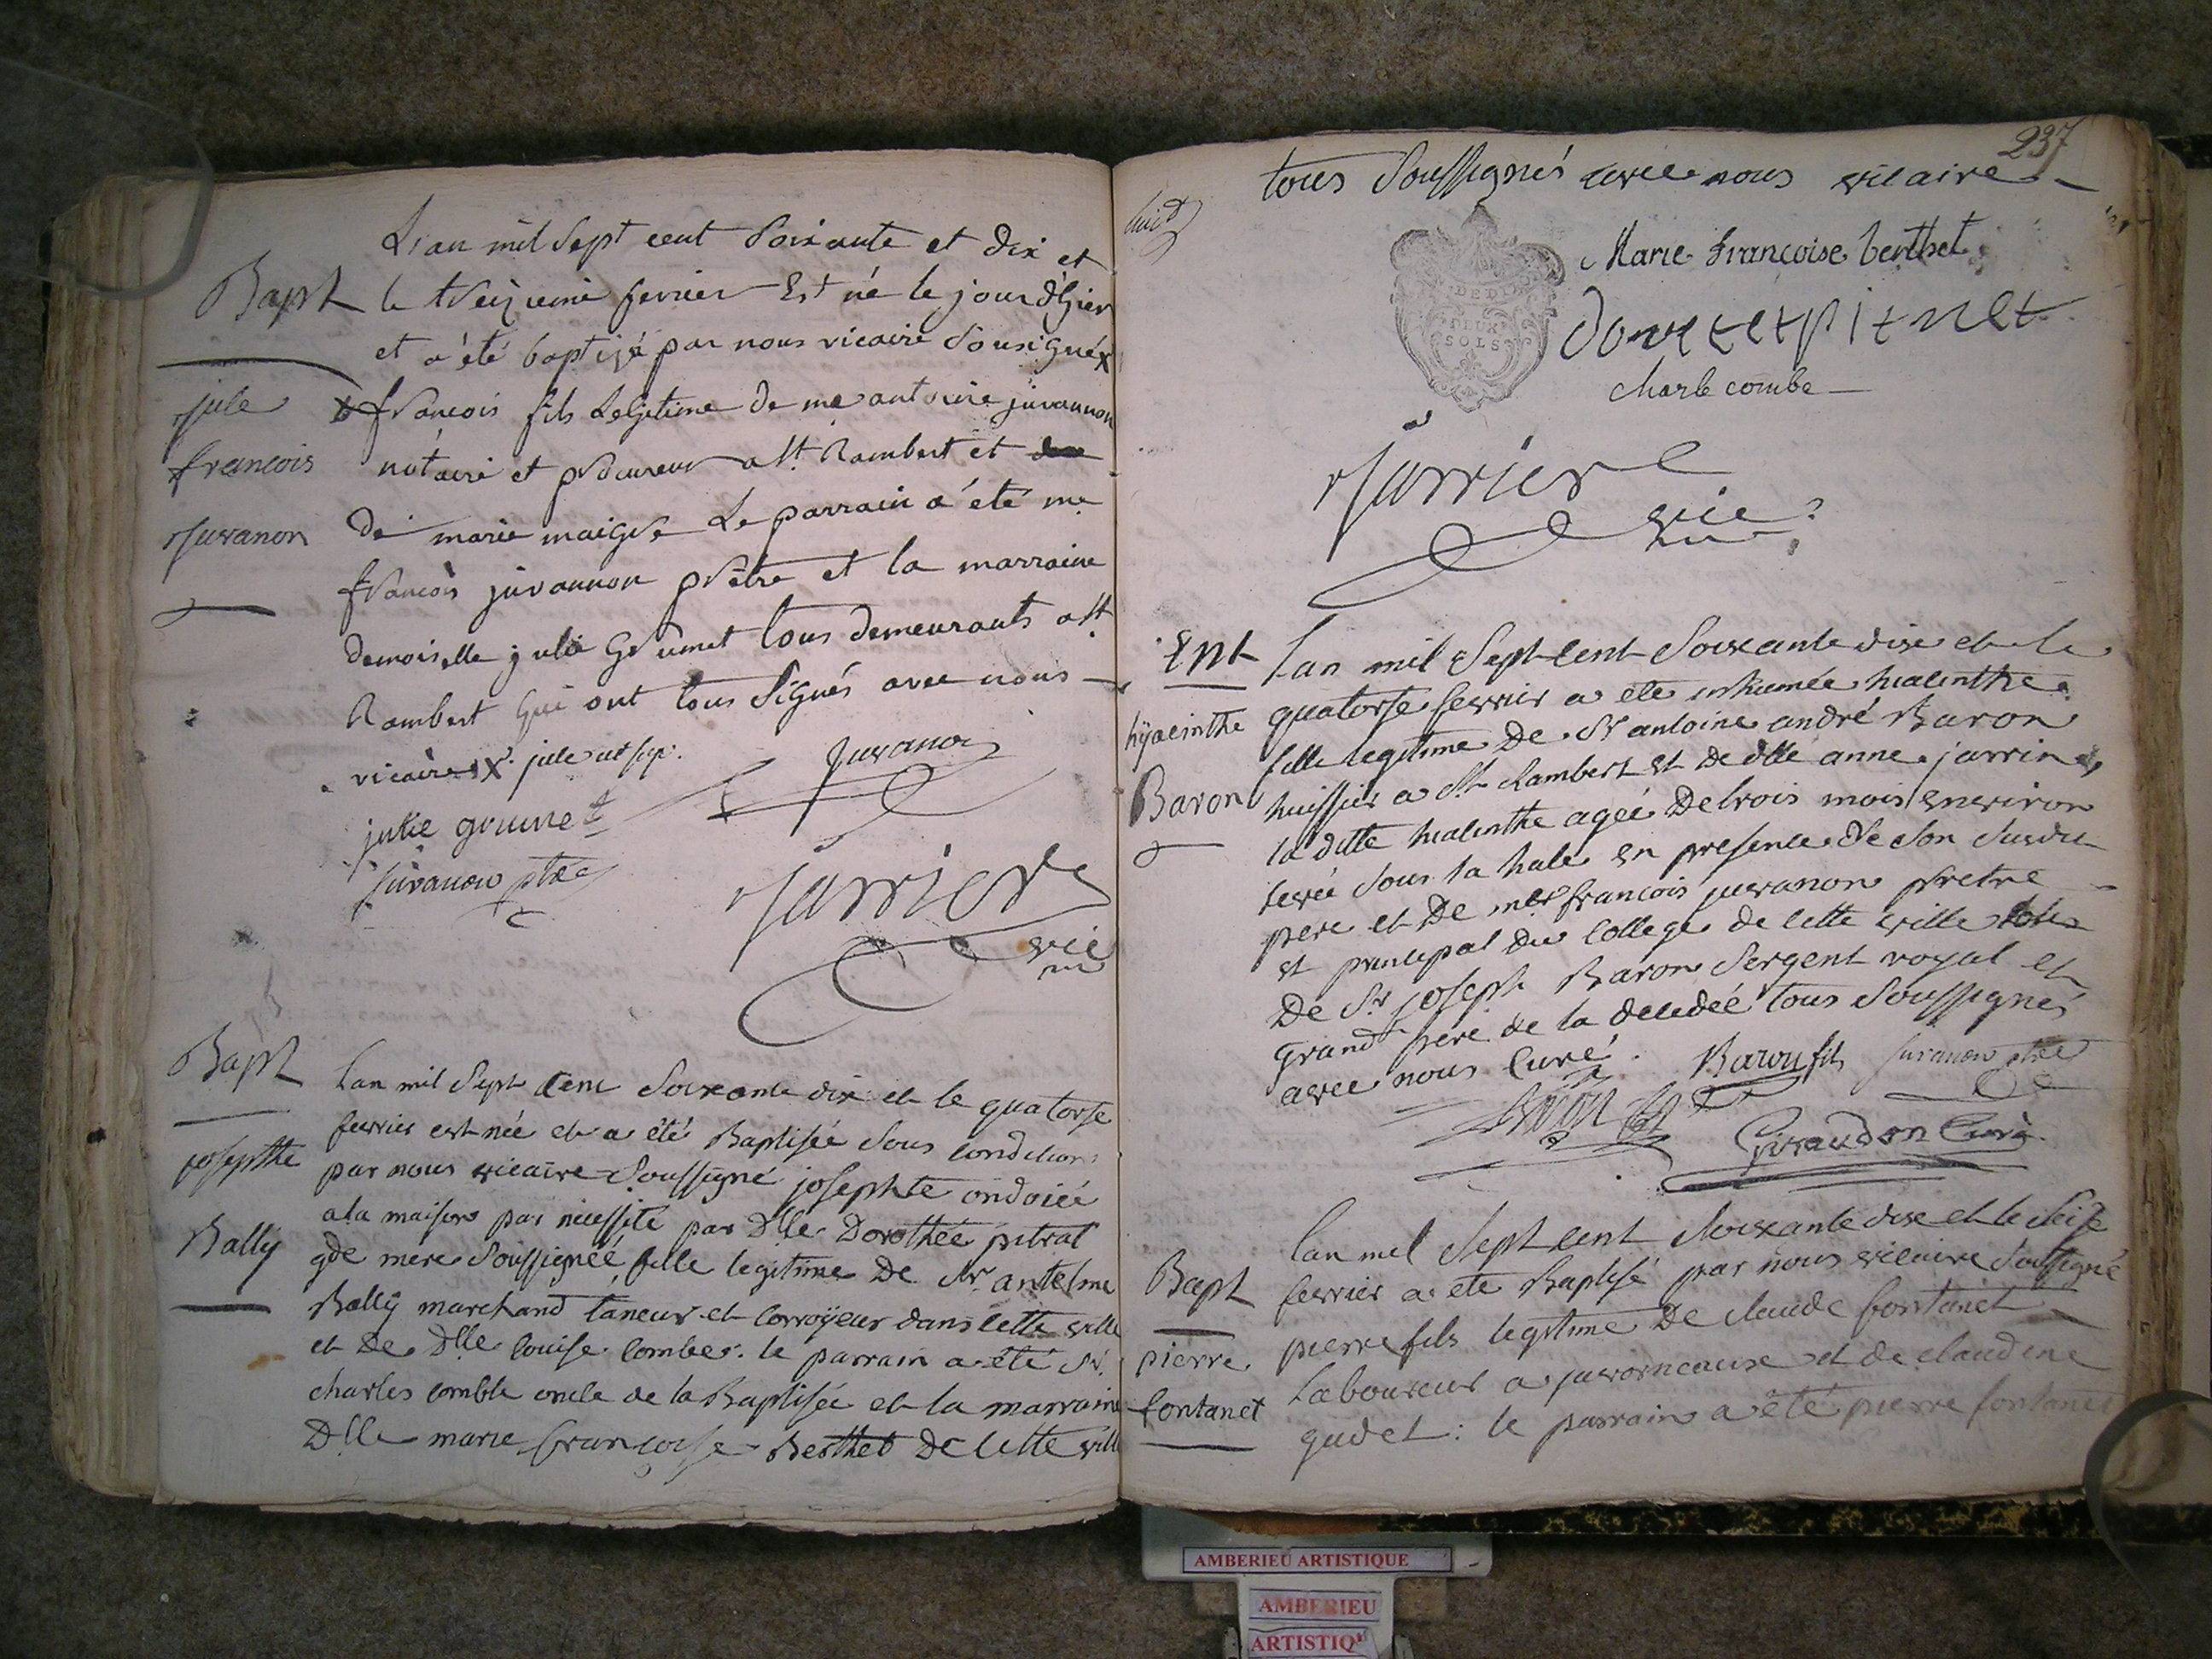 L'an mil sept cent soixante et dix et
Bapt le treizieme fevrier Est né le jour d'hier
et a été baptizé par nous vicaire sousigné x
jule
x francois fils Legitime de me antoine juvannon
francois
notaire et procureur a st. Rambert et
Juvanon
de marie maigre Le parrain a été me
francois juvannon prêtre et la marraine
demoiselle julie Grumet tous demeurants a st
Rambert qui ont tous signés avec nous
vicaire x. jule ut sup.
Juvanon
julie grumet
juvanon ptre
Jarrier
vic
Bapt
Lan mil sept cent soixante dix et le quatorse
fevrier est née et a été Baptisée sous condition
josephte
par nous vicaire soussigné josephte ondoiée
a la maison par necessité par Dlle Dorothée pitrat
Bally
gde mere soussignée, fille legitime De Sr. antelme
Bally marchand taneur et corroyeur dans cette ville
et De Dlle louise combe. le parrain a été Sr.
charles comble oncle de la Baptisée et la marraine
Dlle marie francoise Berthet De cette ville
237
tous soussignés avec nous vicaire
DEUX
SOLS
Marie francoise berthet
charle combe
Jarrier
vic
Ent
Lan mil sept cent soixante dix et le
quatorse fevrier a eté inhumée hiacinthe
hyacinthe
fille legitime De Sr antoine andré Baron
huissier a St Rambert et de dlle anne jarrin
Baron
la ditte hiacinthe agée De trois mois environ
levée sous la hale en presence de son susdit
pere et De mre francois juvanon pretre
et principal du college de cette ville
De Sr joseph Baron sergent royal et
grand pere de la decedée tous soussignés
avec nous curé.
Baron fils
juvanon ptre
Giraudon Curé
Lan mil sept cent soixante dix et le seise
Bapt
fevrier a eté Baptisé par nous vicaire soussigné
pierre fils legitime De claude fontanet
pierre
Laboureur a juvorneause et de claudine
fontanet
gudet: le parrain a été pierre fontanet
AMBERIEU ARTISTIQUE
AMBERIEU
ARTISTIQ